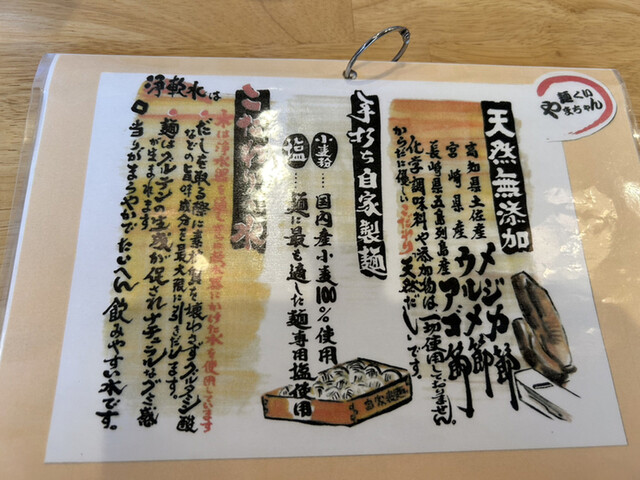 麺くい
やまちゃん
天然無添加
高知県土佐産 メジカ節
宮崎県産 ウルメ節
長崎県五島列島産 アゴ節
化学調味料や添加物は一切使用しておりません。
からだに優しいこだわり天然だしです。
手打ち自家製麺
小麦粉…国内産小麦100%使用
塩…麺に最も適した麺専用塩使用
水は浄水器を通しさらに軟水器にかけた水を使用しています
浄軟水は
だしを取る際に素材の質を壊わさずグルタミン酸
などの旨味成分を最大限に引きだします。
麺はグルテンの生成が促されナチュラルなグミ感
が生まれます。
当りがまろやかでたいへん飲みやすい水です。
自家製麺